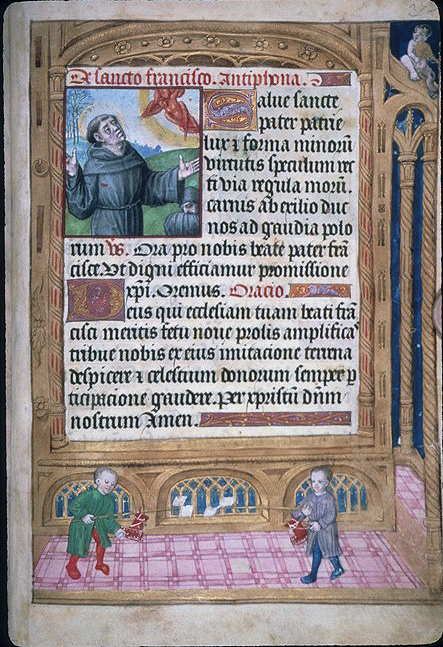 De sancto francisco. Antiphona.
Salue sancte
pater patrie
lux ⁊ forma minorū
virtutis speculum rec
ti via regula morū.
carnis ab exilio duc
nos ad gaudia polo
rum Vs. Ora pro nobis beate pater frā
cisce. Vt digni efficiamur promissione
xp̄i. Oremus. Oratio.
Deus qui ecclesiam tuam beati frā
cisci meritis fetu noue prolis amplificas
tribue nobis ex eius imitacione terrena
despicere ⁊ celestium donorum semper p
ticipacione gaudere. Per xpristū dn̄m
nostrum Amen.